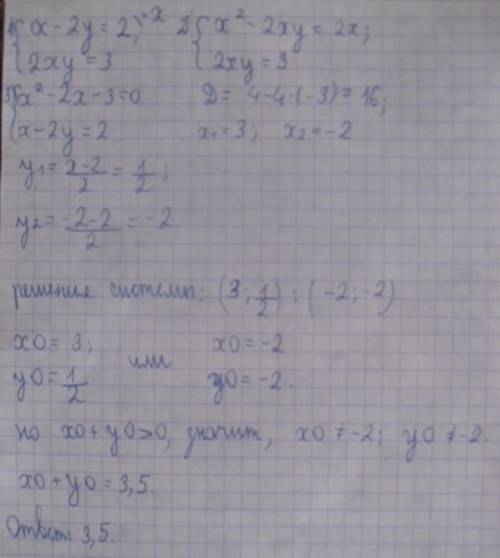 1) { x - 2y = 2; | · x 2) { x² - 2xy = 2x;
{ 2xy = 3 { 2xy = 3
3) { x² - 2x - 3 = 0 D = 4 - 4·(-3) = 16;
{ x - 2y = 2 x₁ = 3; x₂ = -2
y₁ = (x-2)/2 = 1/2;
y₂ = (-2-2)/2 = -2.
решения системы: (3; 1/2); (-2; -2)
x0 = 3; или x0 = -2
y0 = 1/2 y0 = -2.
но x0 + y0 > 0, значит, x0 ≠ -2; y0 ≠ -2
x0 + y0 = 3,5.
Ответ 3,5.